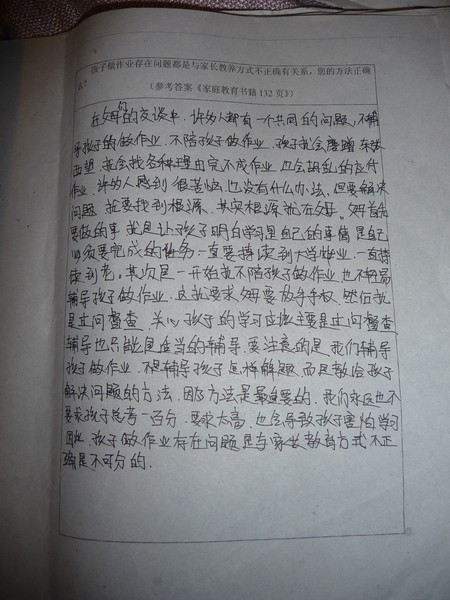 孩子做作业存在问题都是与家长教养方式不正确有关系，您的方法正确
么？ （参考答案《家庭教育书籍132页》）
在父母们的交谈中，许多人都有一个共同的问题，不辅
导孩子的做作业，不陪孩子做作业，孩子就会磨蹭，东张
西望，就会找各种理由完不成作业，也会胡乱的应付
作业，许多人感到很苦恼，也没有什么办法，但要解决
问题，就要找到根源，其实根源就在父母。父母首先
要做的事，就是让孩子明白学习是自己的事情，是自己
必须要完成的任务，一直要持续到大学毕业，一直持
续到老，其次是一开始就不陪孩子做作业，也不轻易
辅导孩子做作业，这就要求父母要放手，然后就
是过问督查，关心孩子的学习应该主要是过问督查
辅导也只能是适当的辅导，要注意的是，我们辅导
孩子做作业，不是辅导孩子怎样解题，而是教给孩子
解决问题的方法，因为方法是最重要的，我们永远也不
要求孩子思考一百分，要求太高，也会导致孩子害怕学习
因此，孩子做作业存在问题是与家长教育方式不正
确是不可分的。